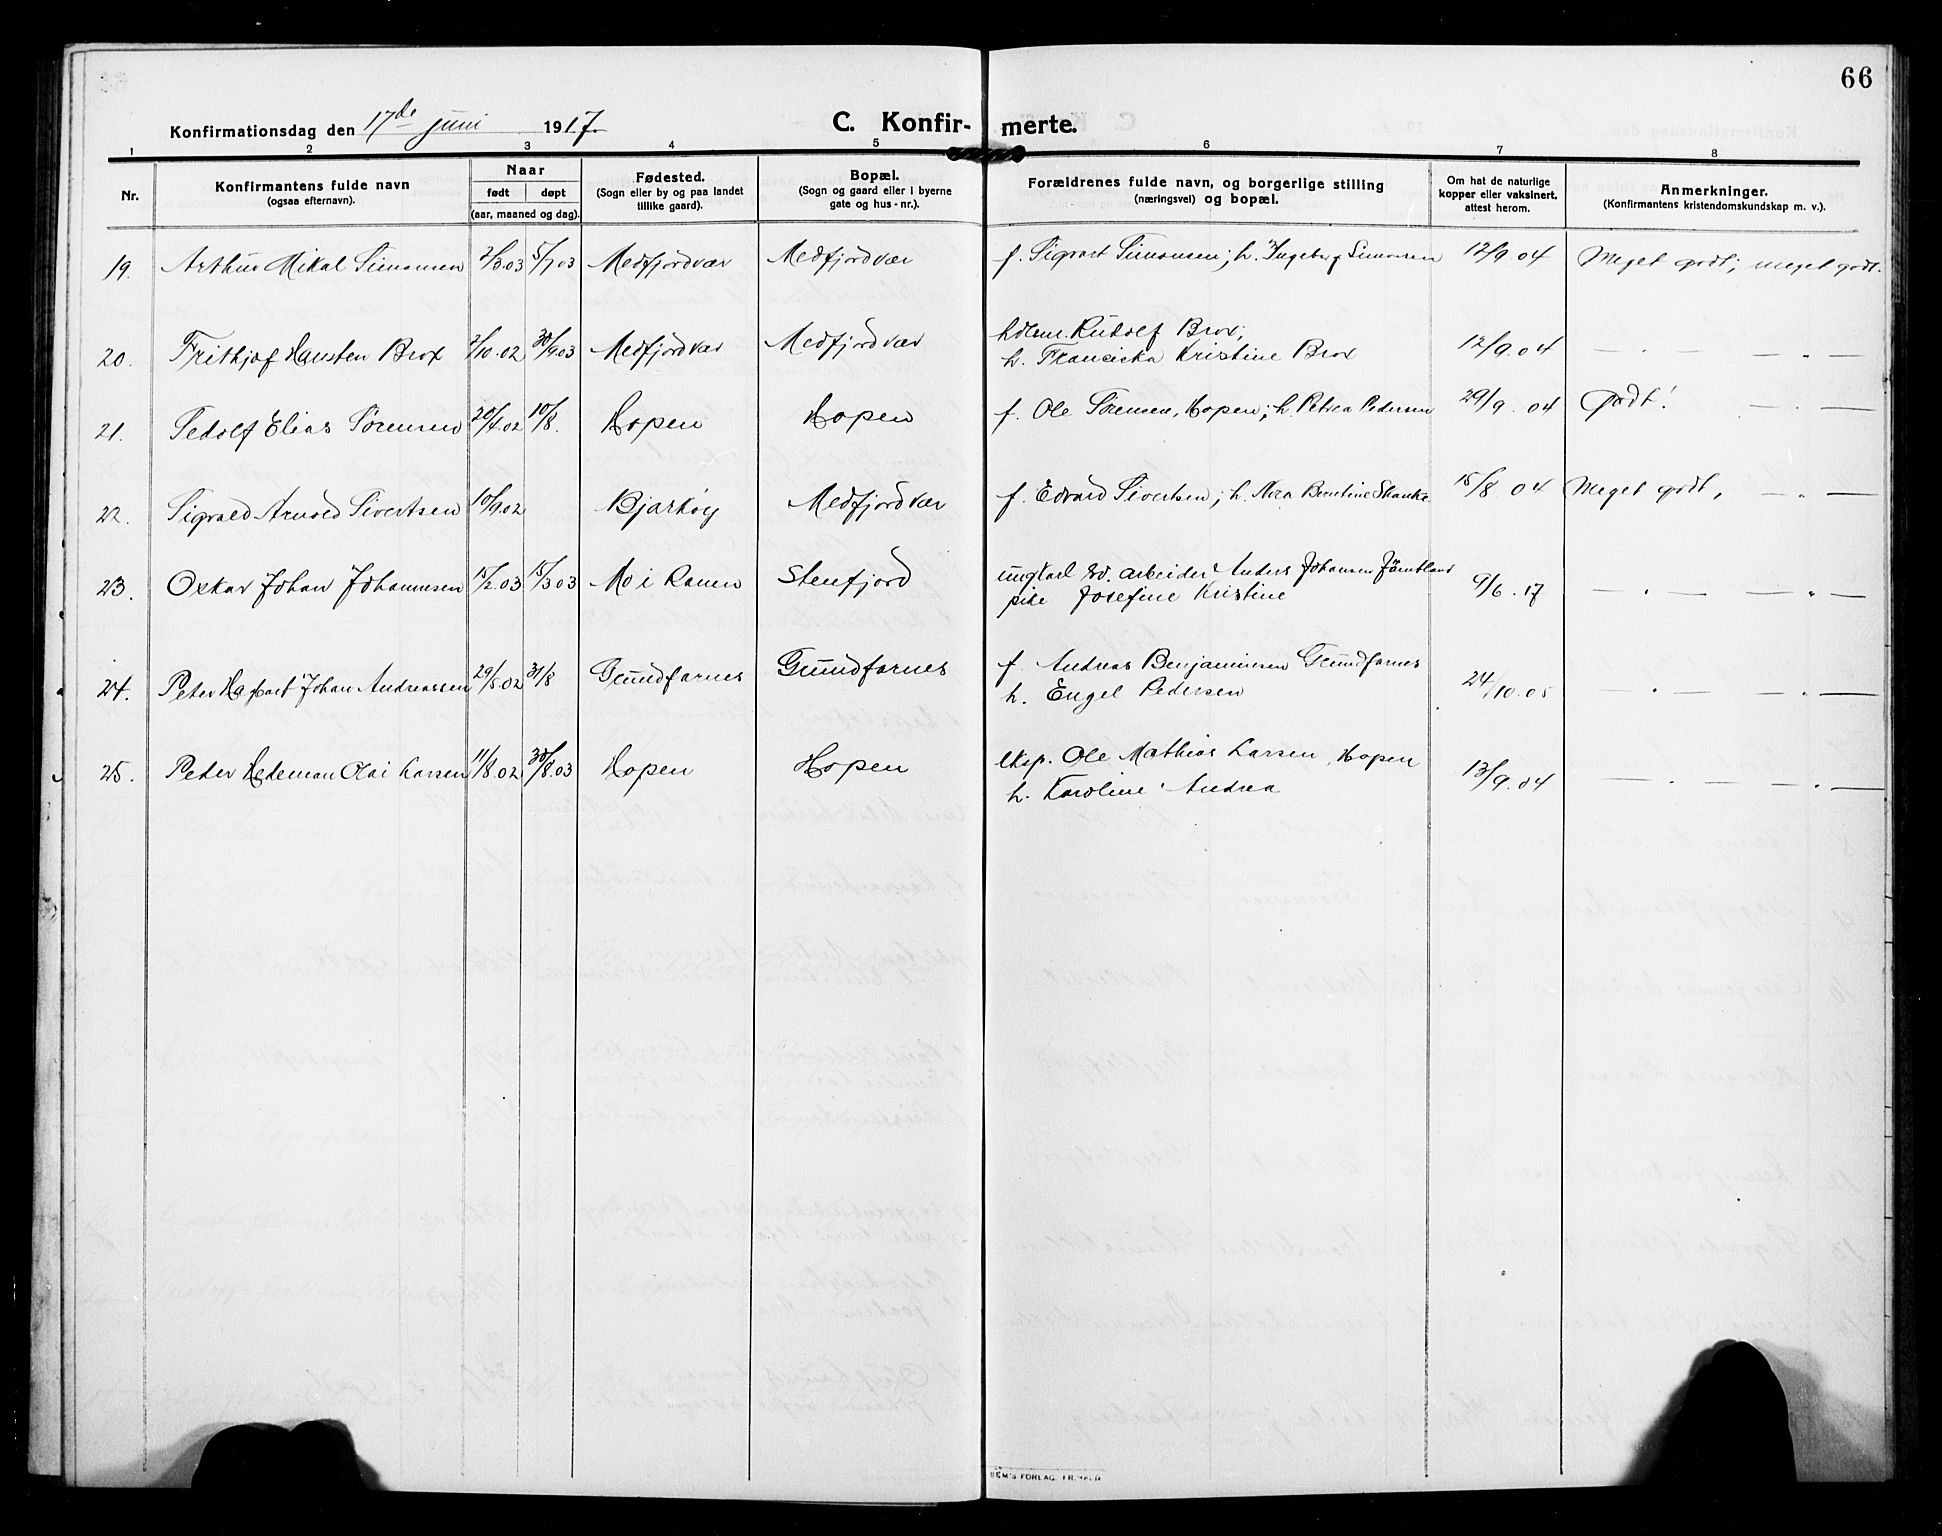 66
Konfirmationsdag den 17de juni 1917.
C. Konfir- merte.
1 2 3 4 5 6 7 8
Nr.
Konfirmantens fulde navn
(ogsaa efternavn).
Naar
født døpt
(aar, maaned og dag).
Fødested.
(Sogn eller by og paa landet
tillike gaard).
Bopæl.
(Sogn og gaard eller i byerne
gate og hus-nr.).
Forældrenes fulde navn, og borgerlige stilling
(næringsvei) og bopæl.
Om hat de naturlige
kopper eller vaksinert,
attest herom.
Anmerkninger.
(Konfirmantens kristendomskundskap m. v.).
19. Arthur Mikal Simonsen 2/3.03 5/7 03 Medfjordvær Medfjordvær f. Sigvart Simonsen; h. Ingeberg Simonsen 12/9 04 Meget godt; meget godt.
20. Frithjof Hansten Brox 2/10.02 30/9 03 Medfjordvær Medfjordvær hdlsm. Rudolf Brox;
h. Franciska Kristine Brox 12/9.04 — . — . —
21. Pedolf Elias Sørensen 20/4.02 10/8. Hopen Hopen f. Ole Sørensen, Hopen; h. Petrea Pedersen 29/9. 04 Godt! — . —
22. Sigvald Arnold Sivertsen 10/9.02 Bjarkøy Medfjordvær f. Edvard Sivertsen; h. Nora Berntine Skanke 15/8 04 Meget godt, — " —
23. Oskar Johan Johannesen 15/2.03 15/3 03 Mo i Ranen Stenfjord ungkarl og arbeider Anders Johansen Jämtland
pike Josefine Kristine 9/6. 17 — . — — " —
24. Peter Johan Andreassen 29/5.02 31/8 Grundfarnes Grundfarnes f. Andreas Benjaminsen Grundfarnes
h. Engel Pedersen 24/10.05 — . — — " —
25. Peder Hedeman Olai Larsen 11/8.02 30/8.03 Hopen Hopen eksp. Ole Mathias Larsen, Hopen
h. Karoline Andrea 13/9.04 — . — — . —